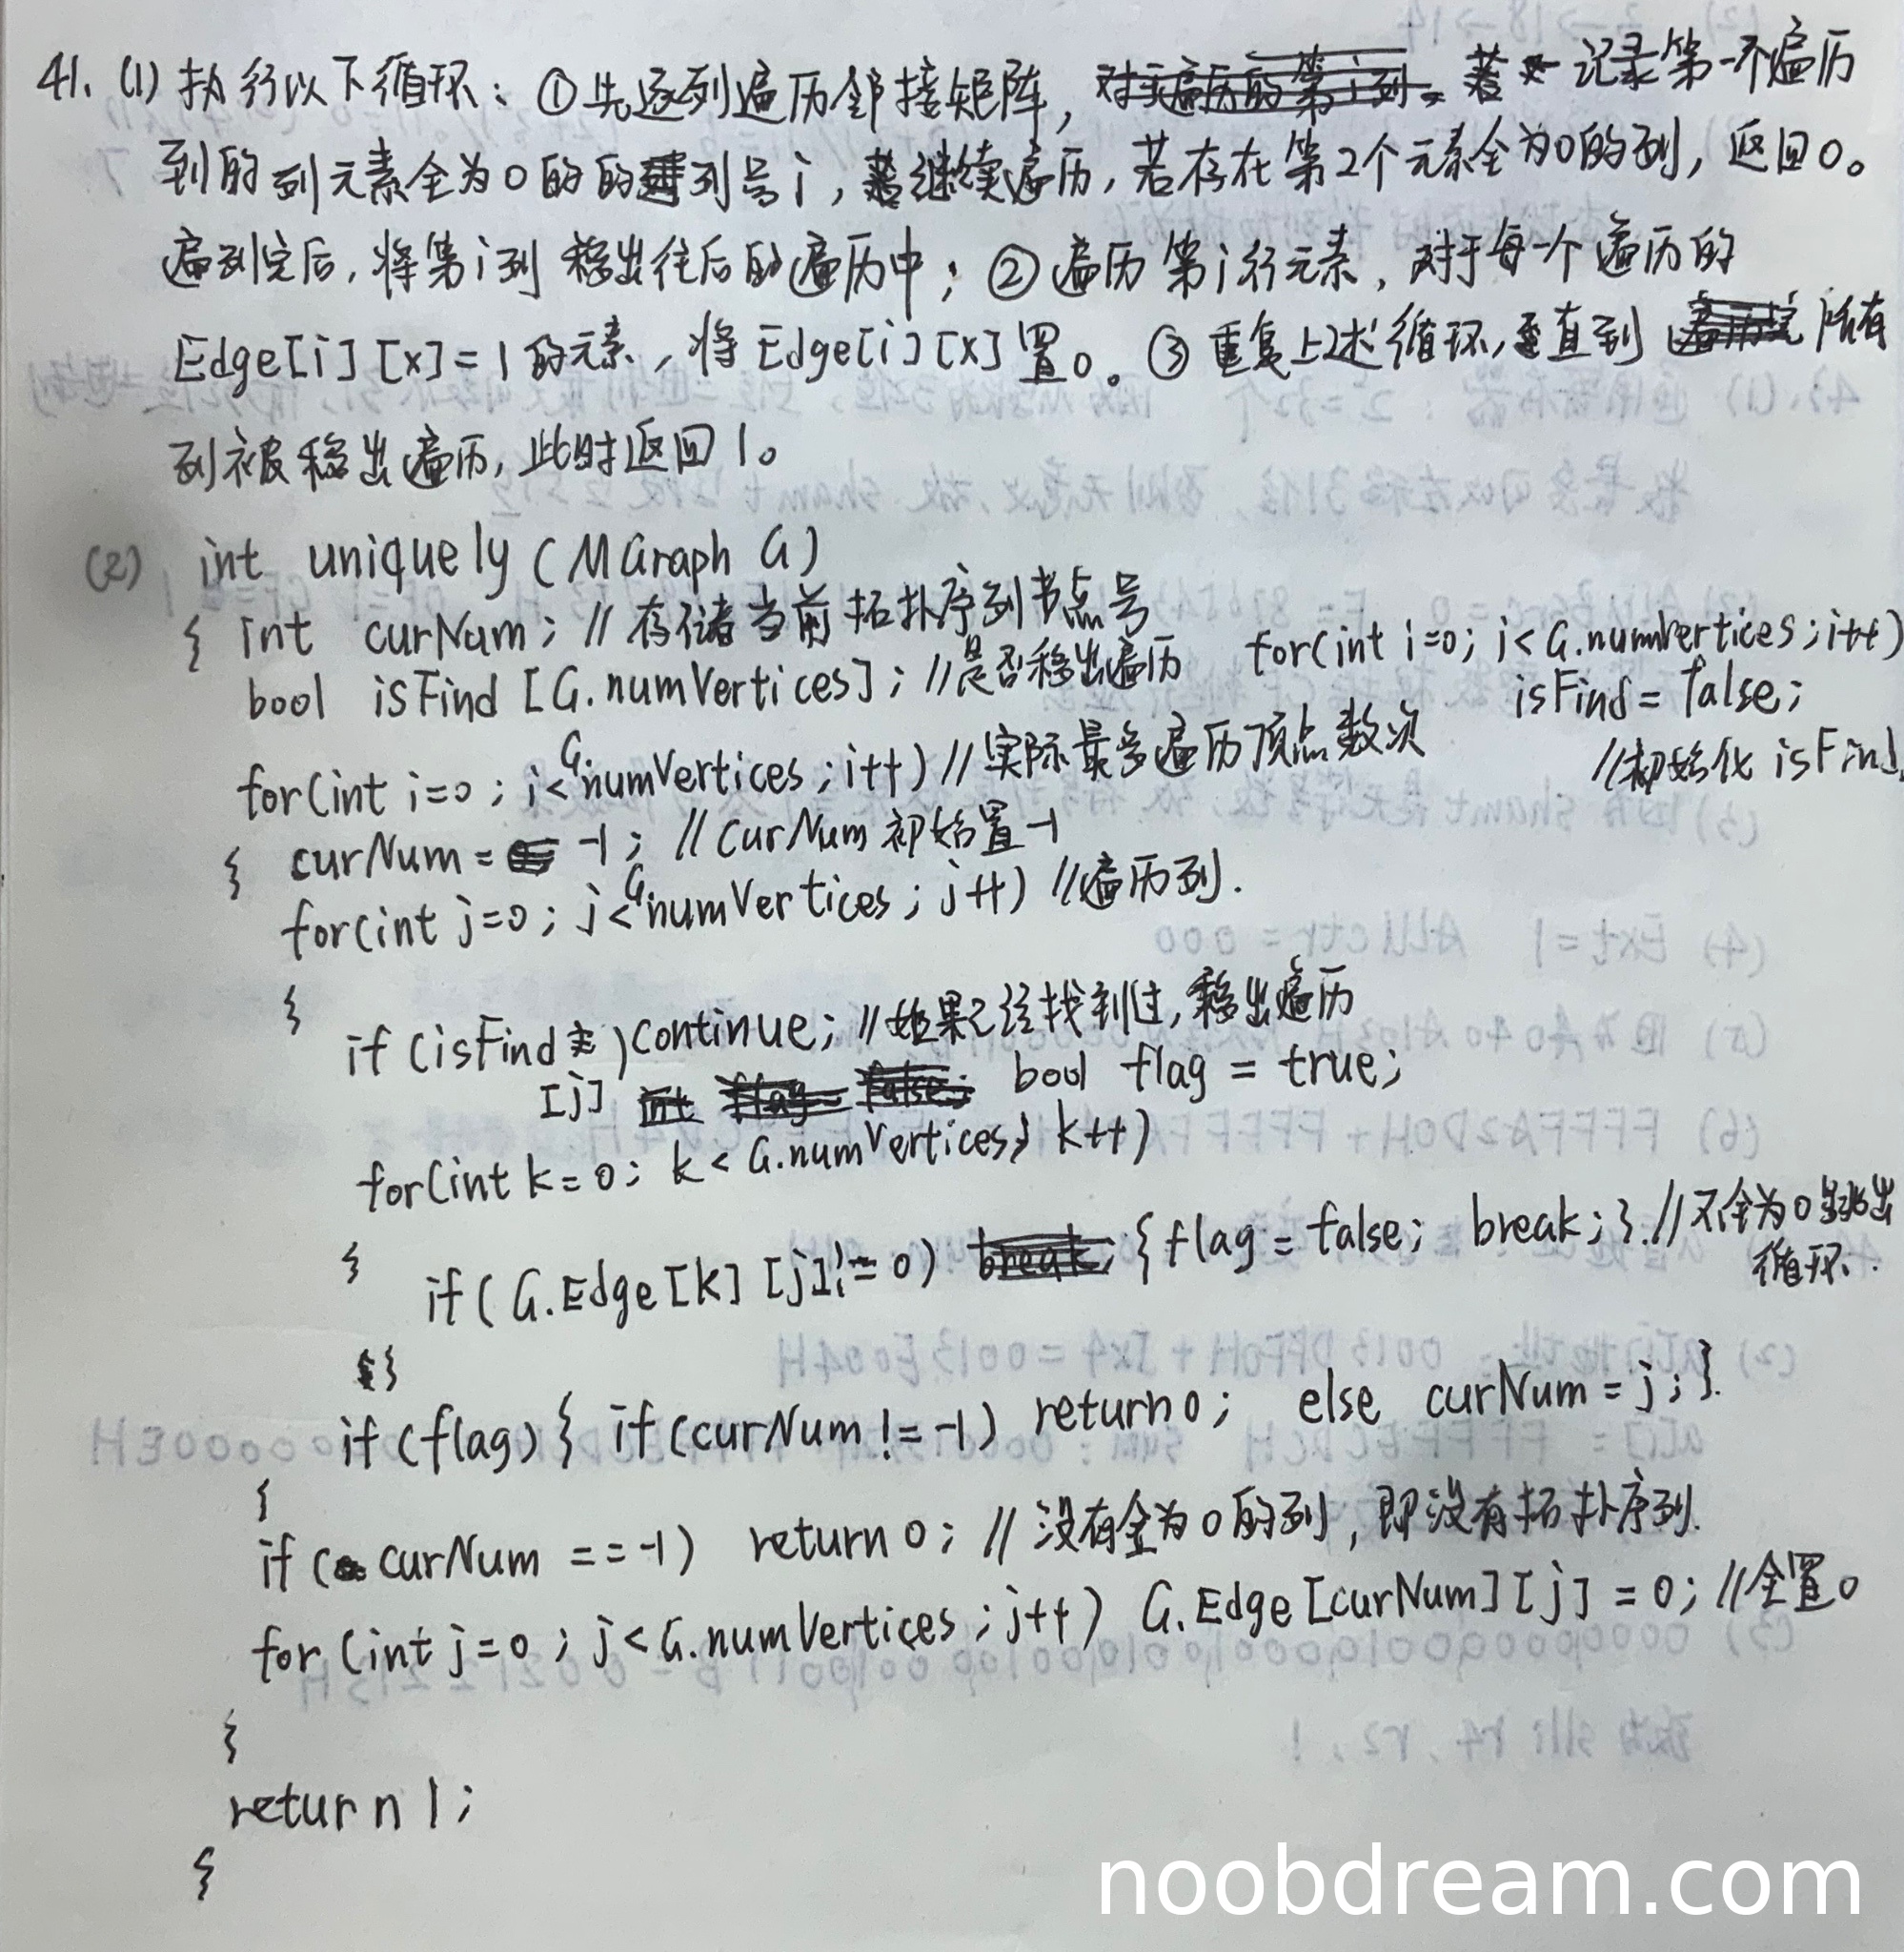 41. (1) 执行以下循环：①先逐列遍历邻接矩阵，记录第一个遍历
到的列元素全为0的的列号i，继续遍历，若存在第2个元素全为0的列，返回0。
遍列完后，将第i列移出往后的遍历中；②遍历第i行元素，对于每一个遍历的
Edge[i][x]=1的元素，将Edge[i][x]置0。③重复上述循环，直到所有
列被移出遍历，此时返回1。
(2) int uniquely (MGraph G)
{ int curNum; //存储当前拓扑序列节点号
bool isFind [G.numVertices]; //是否移出遍历 for(int i=0; i<G.numVertices; i++)
isFind = false;
//初始化 isFind
for(int i=0; i<G.numVertices; i++) //实际最多遍历顶点数次
{ curNum = -1; //curNum初始置-1
for(int j=0; j<G.numVertices; j++) //遍历列.
{
if (isFind[j]) continue; //如果已经找到过,移出遍历
bool flag = true;
for(int k=0; k<G.numVertices; k++)
{ if( G.Edge[k][j]!=0) {flag = false; break;} //不全为0跳出
循环.
}
if(flag) { if(curNum != -1) return 0; else curNum = j; }
}
if( curNum == -1) return 0; //没有全为0的列,即没有拓扑序列.
for (int j=0; j<G.numVertices; j++) G.Edge[curNum][j] = 0; //全置0
}
return 1;
}
noobdream.com